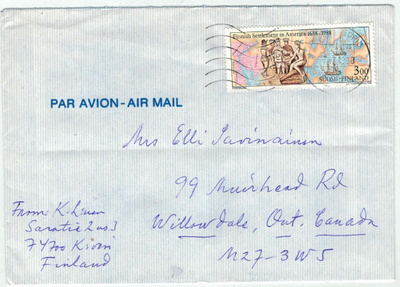 Finnish Settlement in America 1638-1988
3,00
SUOMI-FINLAND
PAR AVION-AIR MAIL
Mrs Elli Savinainen
99 Muirhead Rd
Willowdale, Ont. Canada
M2J-3W5
From: K.
74700
Finland